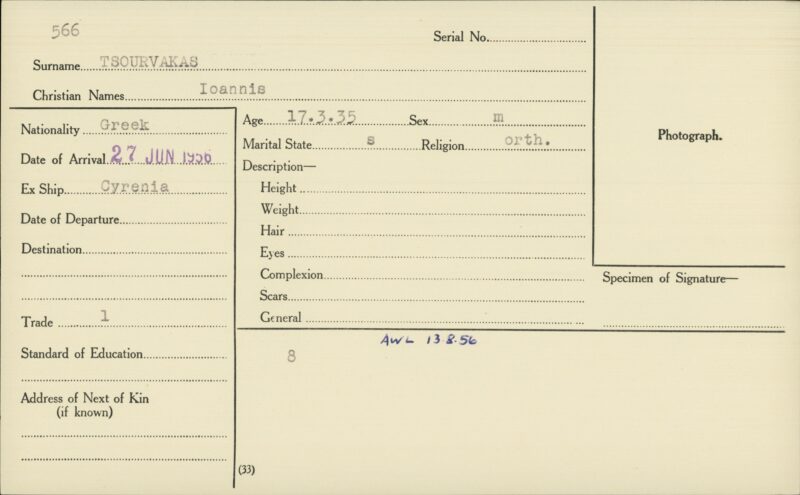 566
Serial No.
Surname TSOURVAKAS
Christian Names Ioannis
Nationality Greek
Date of Arrival 27 JUN 1956
Ex Ship Cyrenia
Date of Departure
Destination
Trade 1
Standard of Education
Address of Next of Kin
(if known)
Age 17.3.35 Sex m
Marital State s Religion orth.
Description—
Height
Weight
Hair
Eyes
Complexion
Scars
General
Photograph.
Specimen of Signature—
AWL 13.8.56
8
(33)